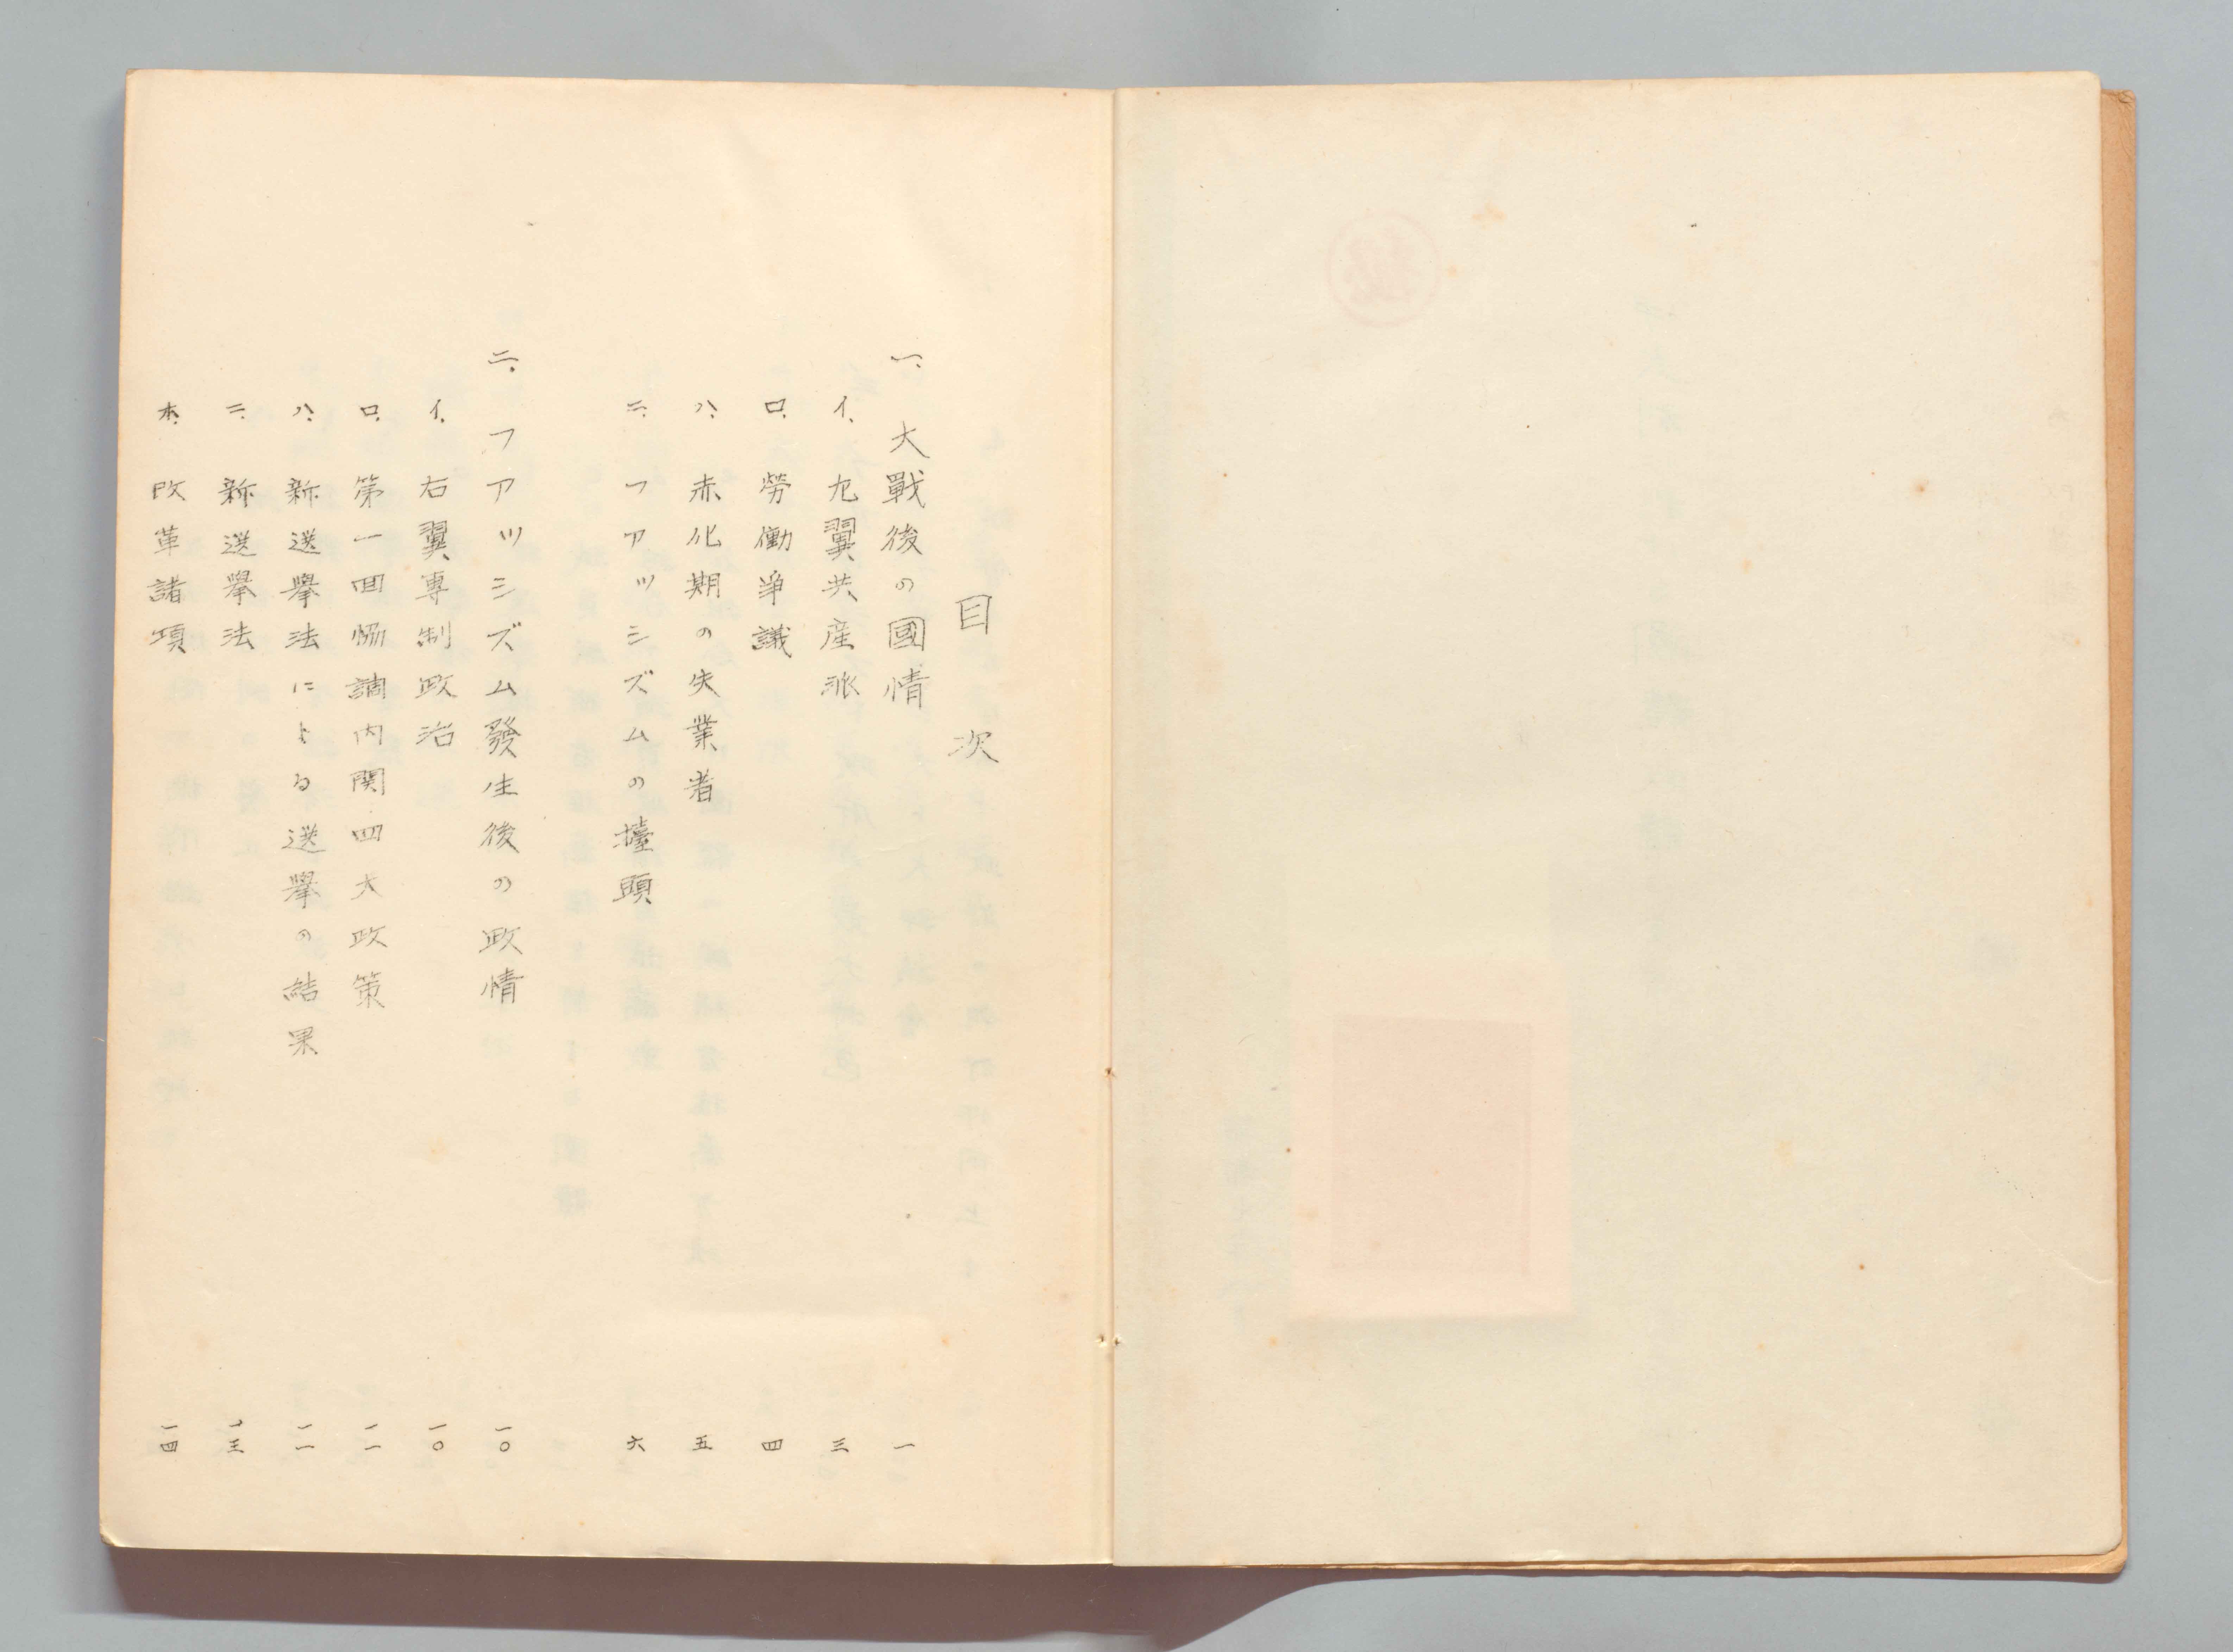 目次
一、大戰後の國情 一
イ、左翼共産派 三
ロ、勞働爭議 四
ハ、赤化期の失業者 五
ニ、フアツシズムの擡頭 六
二、フアツシズム發生後の政情 一〇
イ、右翼專制政治 一〇
ロ、第一回協調内閣四大政策 一一
ハ、新選擧法による選擧の結果 一一
ニ、新選擧法 一三
ホ、改革諸項 一四